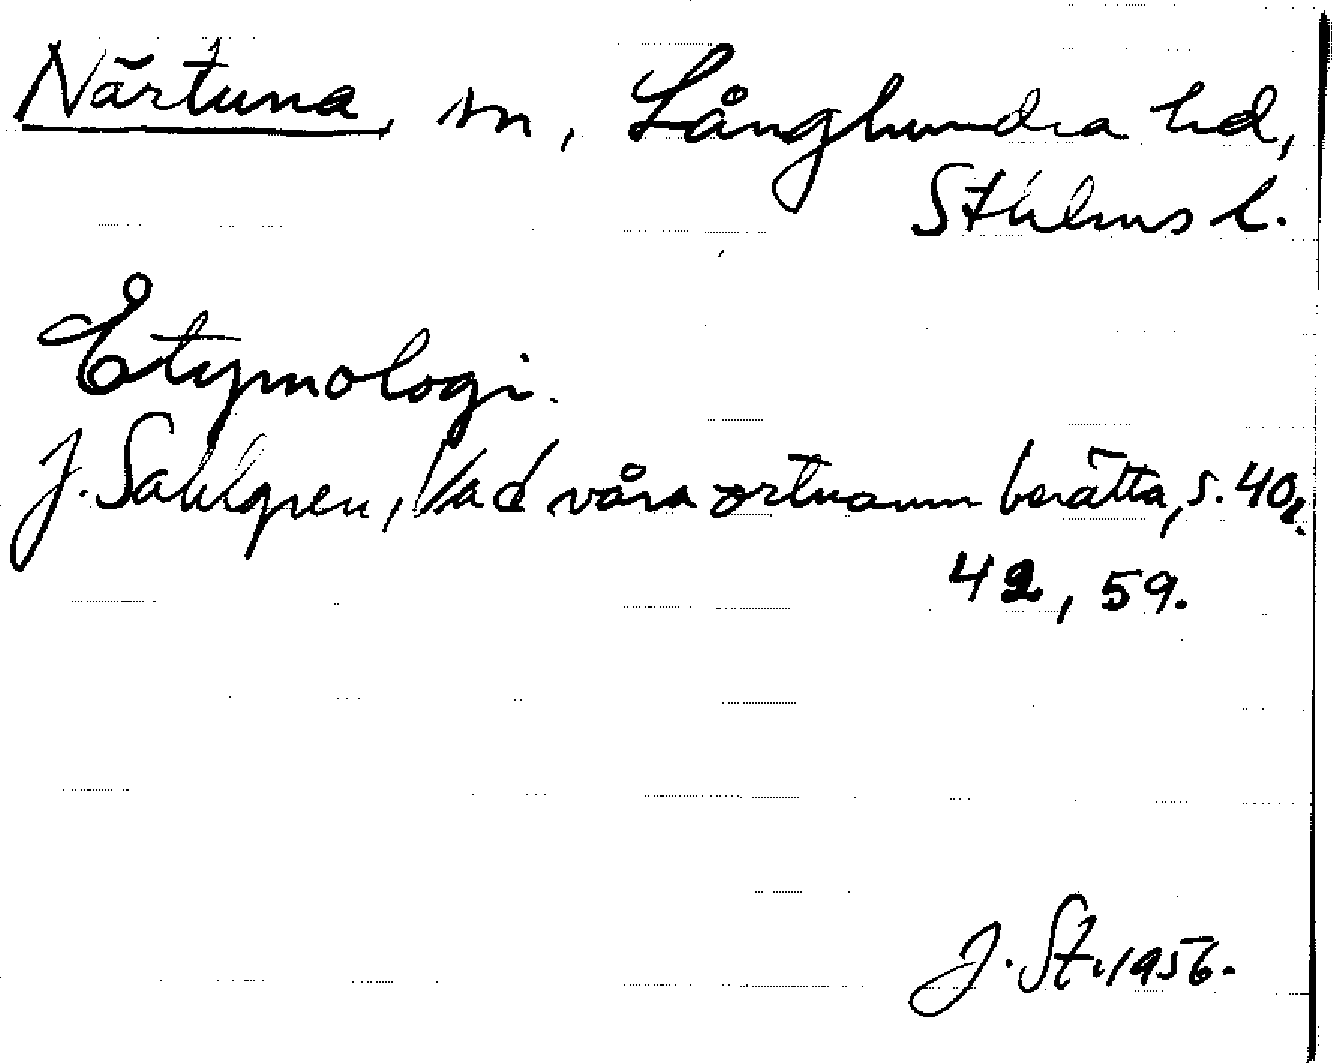 Närtuna, sn, Långhundra hd,
Sthlms l.
Etymologi.
J. Sahlgren, Vad våra ortnamn berätta, s. 40f.
42, 59.
J. St. 1956.